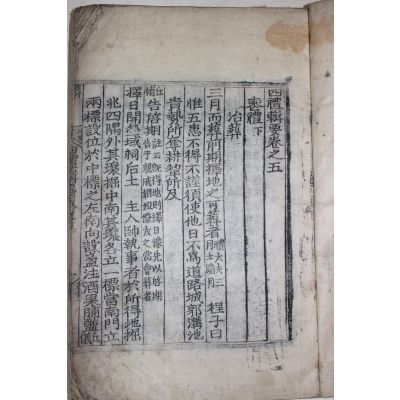 四禮輯要卷之五
喪禮下
治葬
三月而葬前期擇地之可葬者 禮大夫三月士踰月 程子曰
惟五患不得不謹須使他日不爲道路城郭溝池
貴勢所奪耕犂所及
告啓期
擇日開塋域祠后土 主人帥執事者於所得地掘
兆四隅外其壤掘中南其壤各立一標當南門立
兩標設位於中標之左南向設盞注酒果脯醢